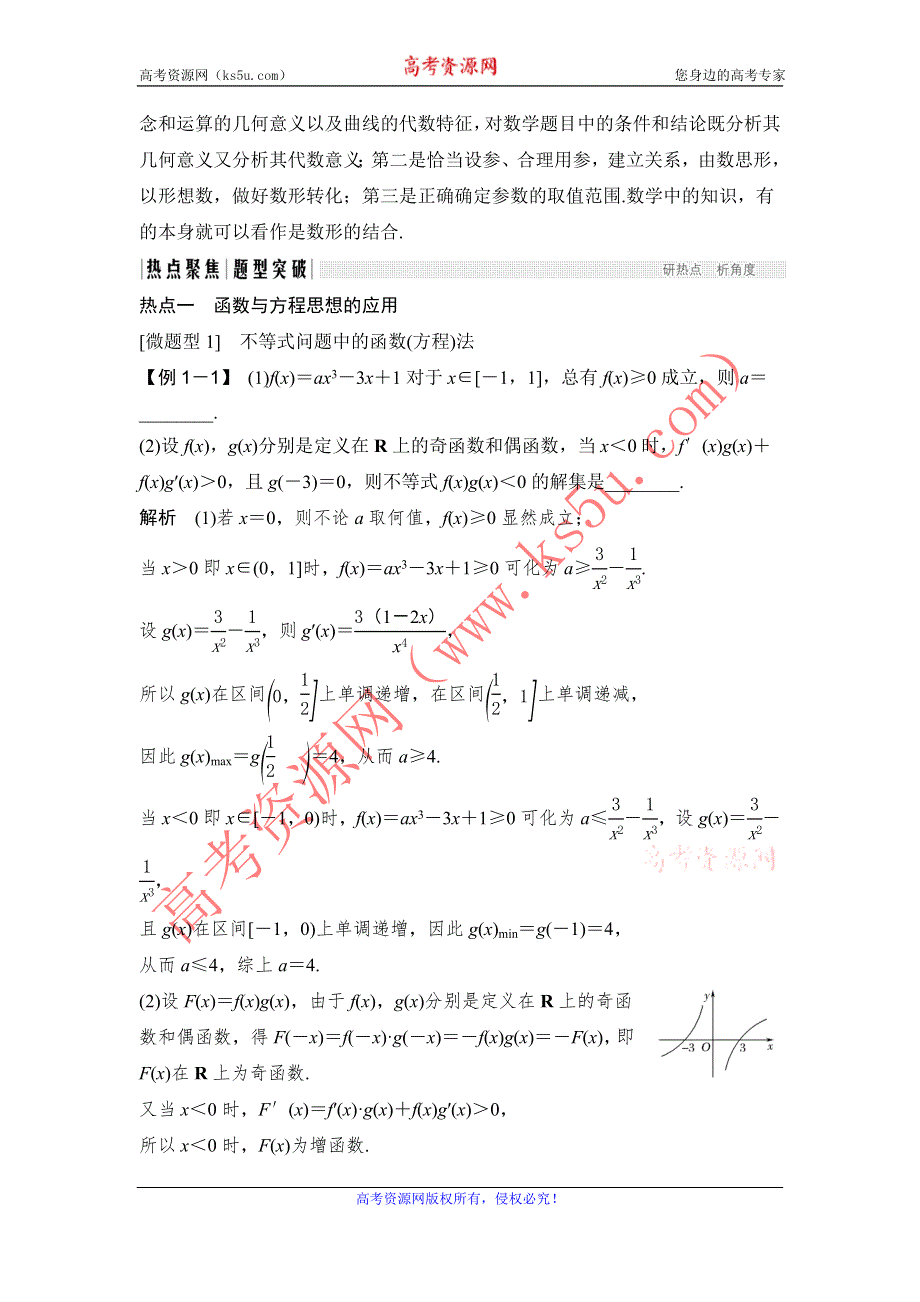 高考资源网（ks5u.com）
高考资源网
您身边的高考专家
念和运算的几何意义以及曲线的代数特征，对数学题目中的条件和结论既分析其
几何意义又分析其代数意义；第二是恰当设参、合理用参，建立关系，由数思形，
以形想数，做好数形转化；第三是正确确定参数的取值范围.数学中的知识，有
的本身就可以看作是数形的结合.
热点聚焦 题型突破 研热点 析角度
热点一 函数与方程思想的应用
[微题型1] 不等式问题中的函数(方程)法
【例1－1】 (1)f(x)＝ax³－3x＋1对于x∈[－1，1]，总有f(x)≥0成立，则a＝
________.
(2)设f(x)，g(x)分别是定义在R上的奇函数和偶函数，当x＜0时，f′(x)g(x)＋
f(x)g′(x)＞0，且g(－3)＝0，则不等式f(x)g(x)＜0的解集是________.
解析 (1)若x＝0，则不论a取何值，f(x)≥0显然成立；
当x＞0即x∈(0，1]时，f(x)＝ax³－3x＋1≥0可化为a≥3/x²－1/x³.
设g(x)＝3/x²－1/x³，则g′(x)＝3（1－2x）/x⁴，
所以g(x)在区间(0，1/2]上单调递增，在区间[1/2，1]上单调递减，
因此g(x)max＝g(1/2)＝4，从而a≥4.
当x＜0即x∈[－1，0)时，f(x)＝ax³－3x＋1≥0可化为a≤3/x²－1/x³，设g(x)＝3/x²－
1/x³，
且g(x)在区间[－1，0)上单调递增，因此g(x)min＝g(－1)＝4，
从而a≤4，综上a＝4.
(2)设F(x)＝f(x)g(x)，由于f(x)，g(x)分别是定义在R上的奇函
数和偶函数，得F(－x)＝f(－x)·g(－x)＝－f(x)g(x)＝－F(x)，即
F(x)在R上为奇函数.
又当x＜0时，F′(x)＝f′(x)·g(x)＋f(x)g′(x)＞0，
所以x＜0时，F(x)为增函数.
y
−3 O 3 x
高考资源网（www.ks5u.com）
高考资源网
高考资源网版权所有，侵权必究！